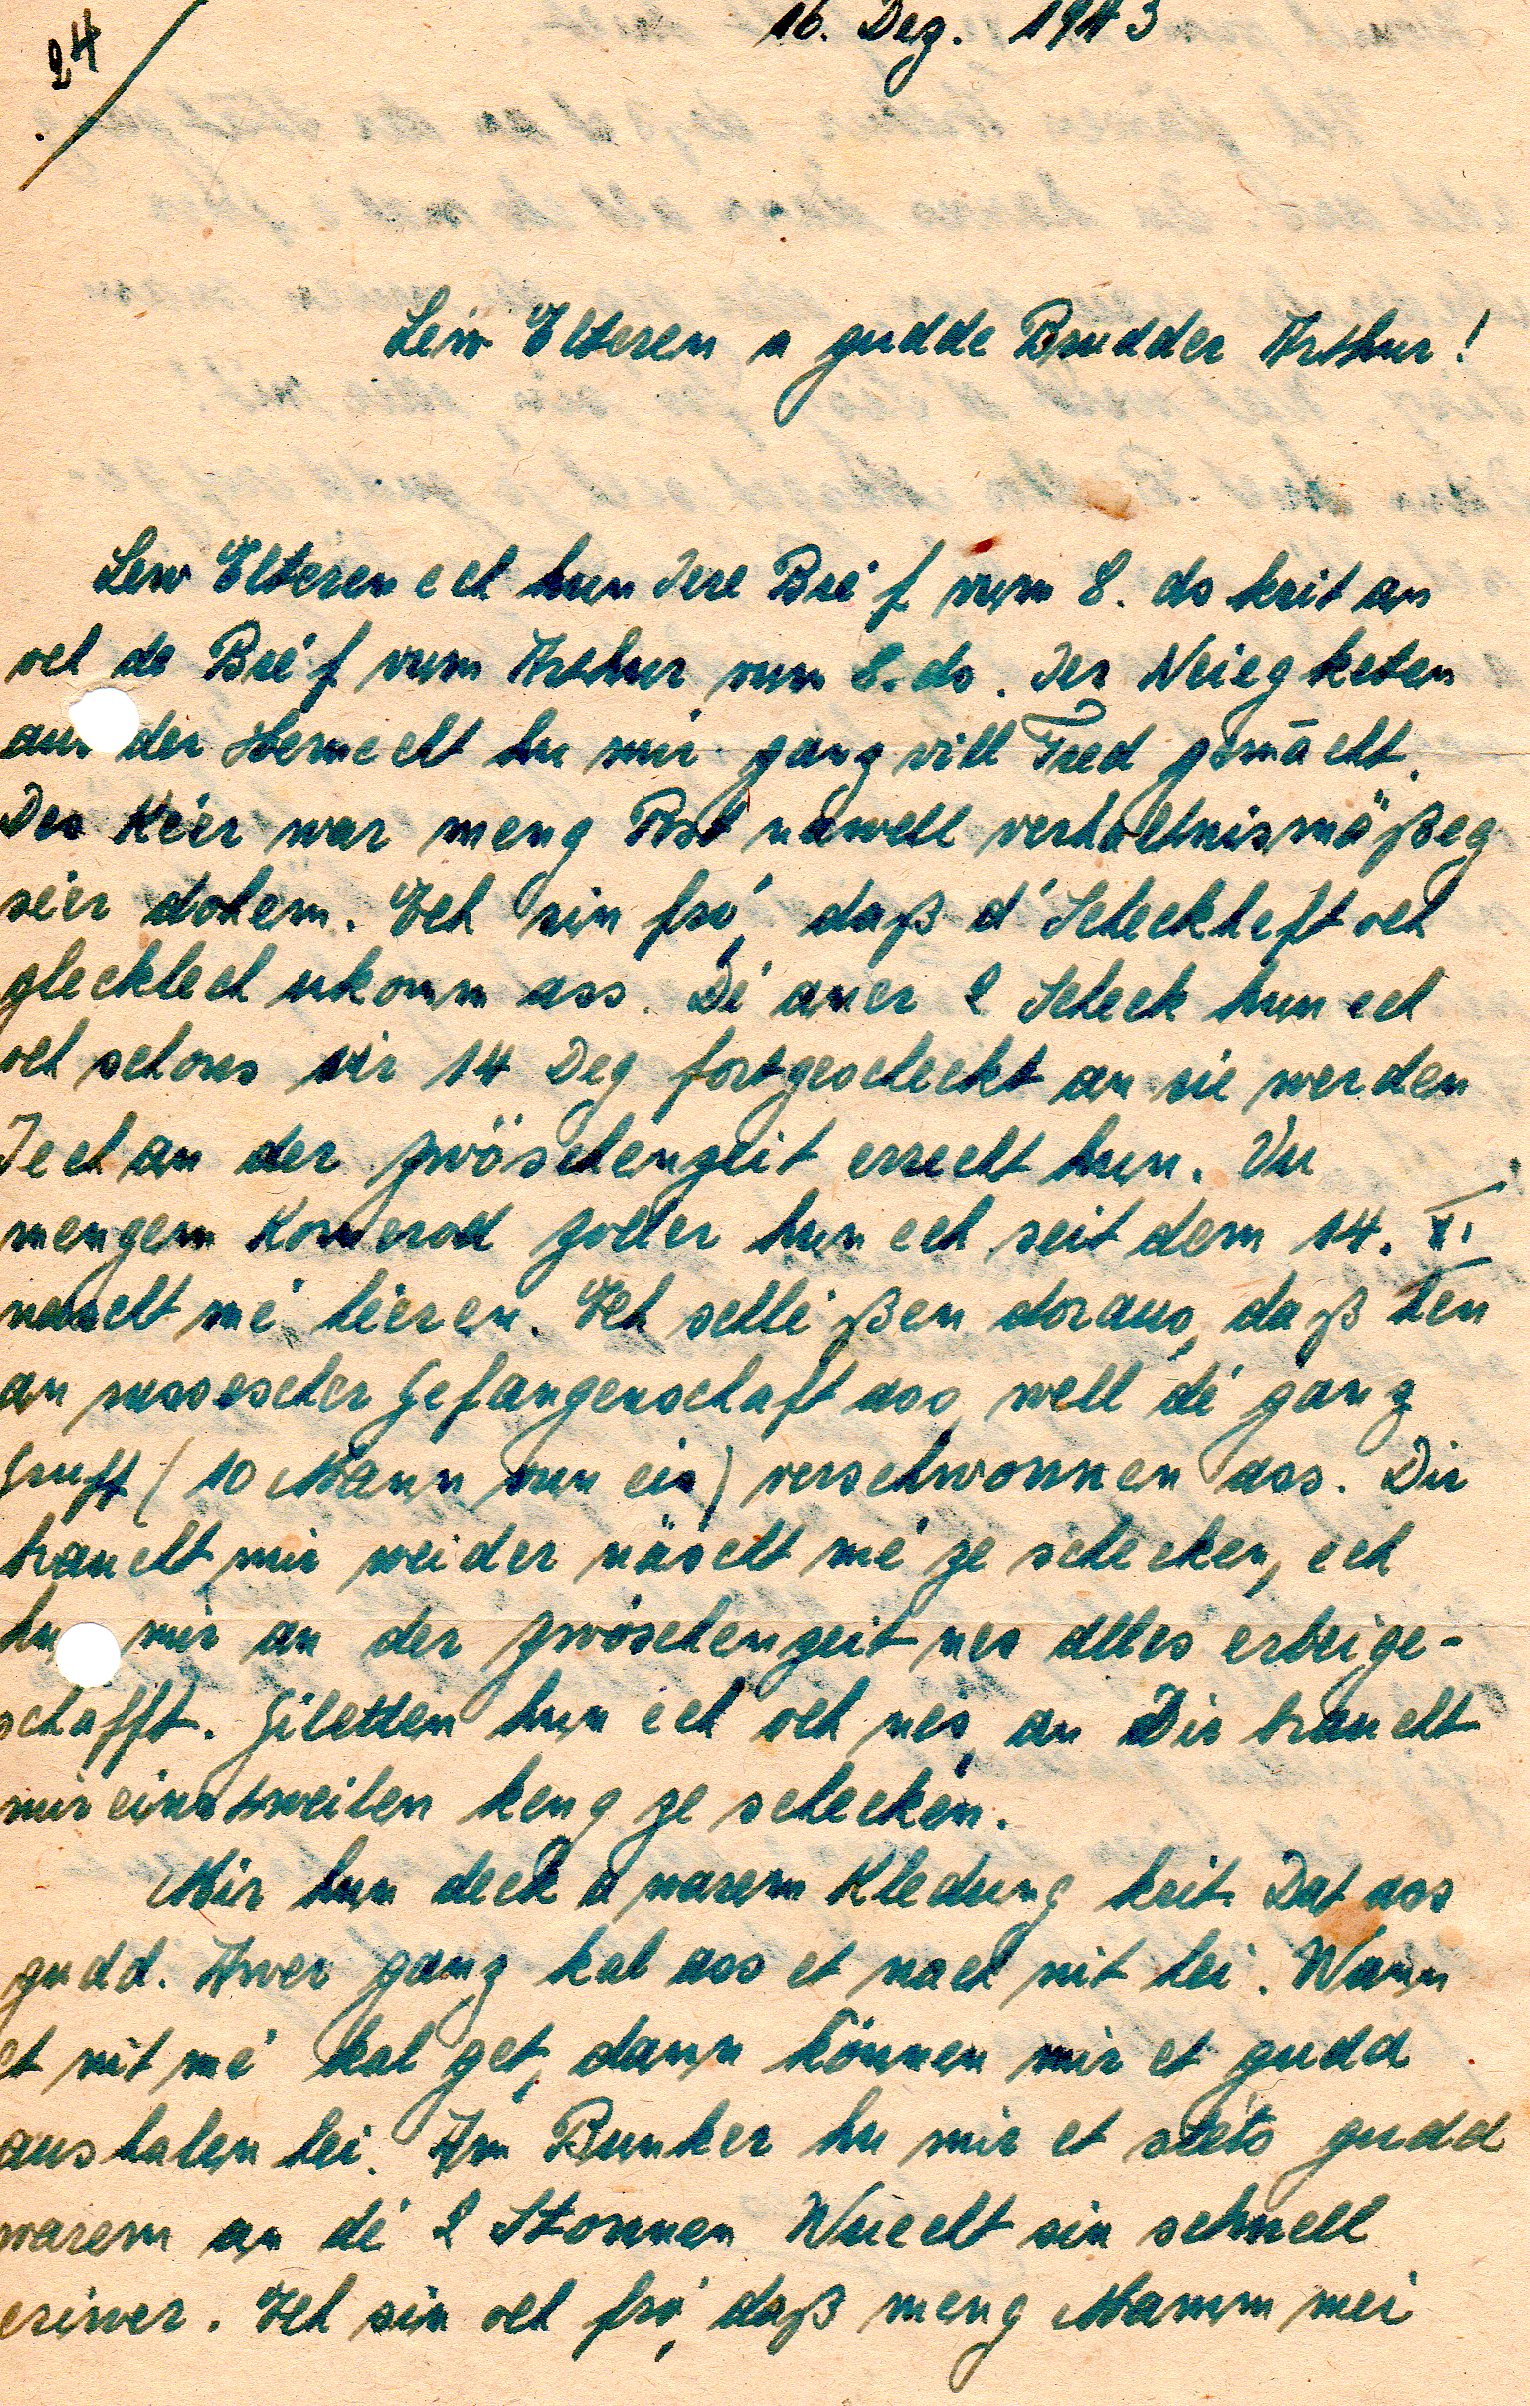 24
16. Dez. 1943
Leiw Elteren a gudde Brudder Arthur!
Leiw Elteren ech hun Iere Bréif vum 8. ds krit an
och de Bréif vum Arthur vum 8. ds. Ier Neiegketen
aus der Hemecht hu mir ganz vill Fred gemächt.
Des Kéer war meng Post nawell verhältnismäßeg
séier dohem. Ech sin fro, daß d'Scheckheft och
glecklech ukomm ass. Dé aner 2 Scheck hun ech
och schons vir 14 Deg fortgescheckt an sie werden
Iech an der Zwöschenzeit errecht hun. Vu
mengem Komerod Zoller hun ech seit dem 14. XI
näscht mé héieren. Ech schléißen doraus, daß hen
an russescher Gefangenschaft ass, well dé ganz
Grupp (10 Mann vun eis) verschwonnen ass. Dir
braucht mir weider näscht mé ze schecken, ech
hu mir an der Zwöschenzeit nes alles erbeige-
schafft. Giletten hun ech och nés, an Dir braucht
mir einstweilen keng ze schecken.
Mir hun deck a warem Kledung krit. Dat ass
gudd. Awer ganz kal ass et nach nit hei. Wann
et nit mé kal get, dann können mir et gudd
aushalen hei. Am Bunker hu mir et stets gudd
warem an dé 2 Stonnen Wuecht sin schnell
eriwer. Ech sin och fro, daß meng Mamm mei